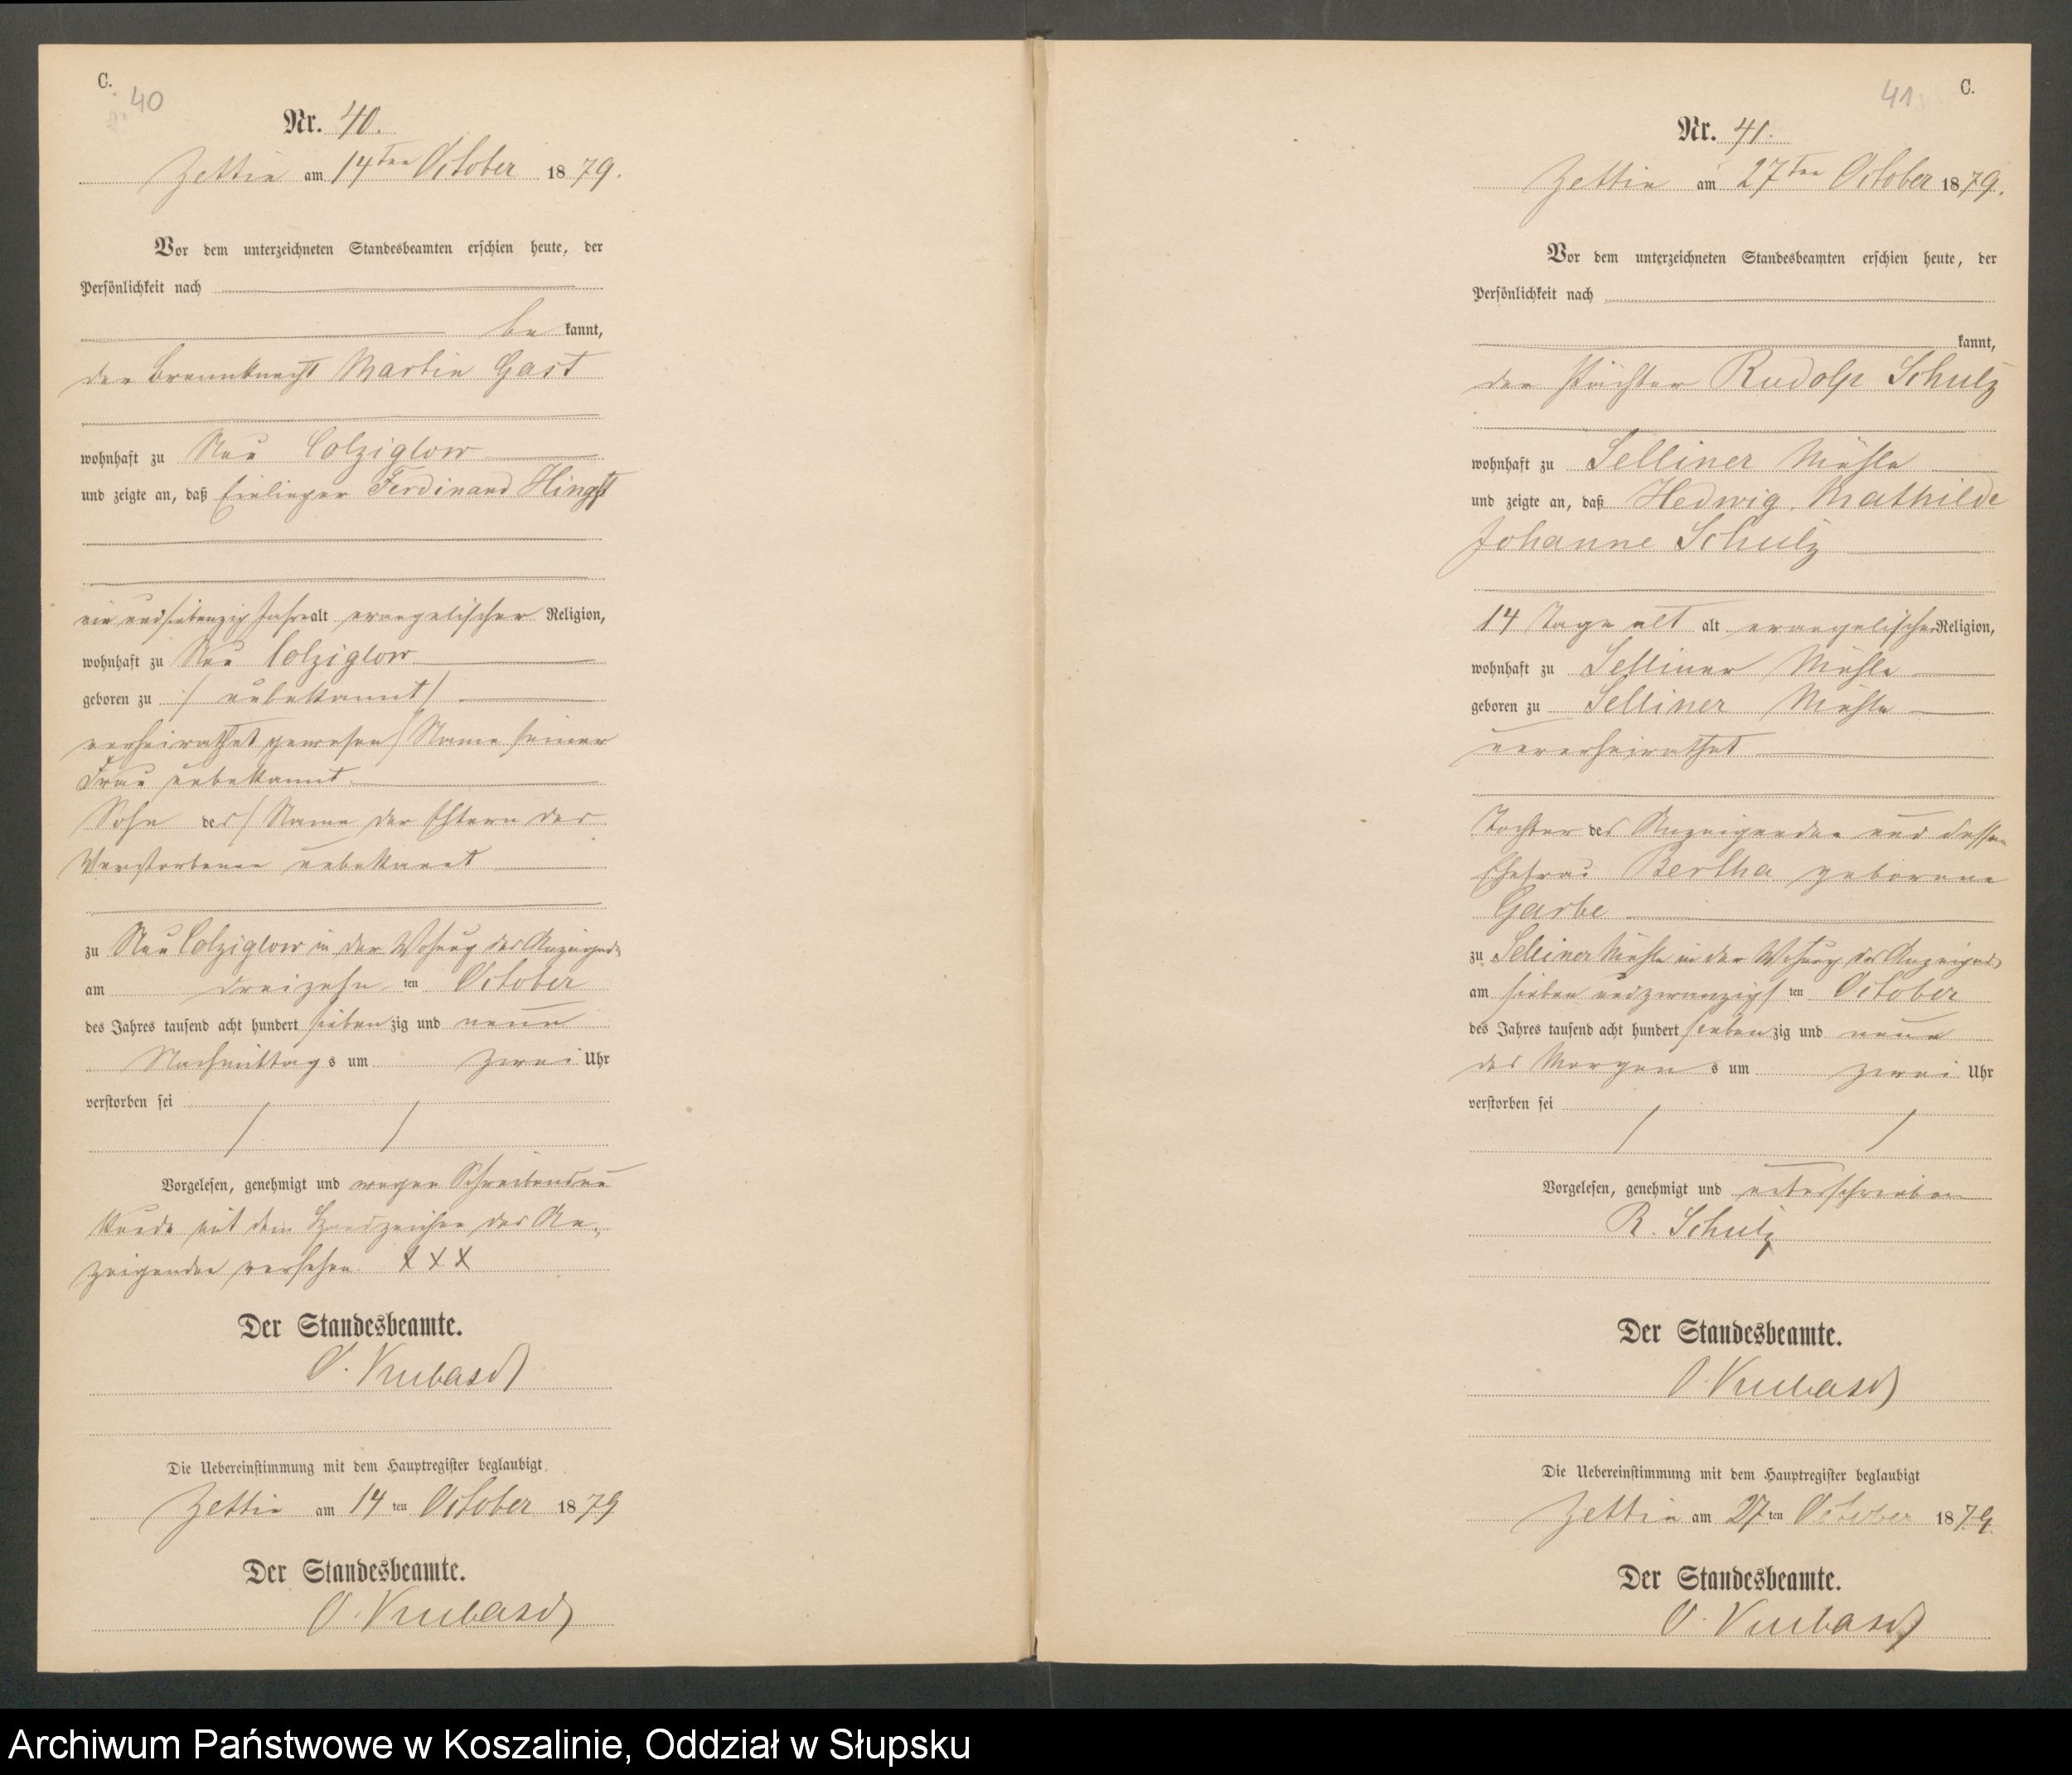 C.
40
Nr. 40.
Zettin am 14ten October 1879.
Vor dem unterzeichneten Standesbeamten erschien heute, der
Persönlichkeit nach
be kannt,
der Brennknecht Martin Gast
wohnhaft zu Neu Colziglow
und zeigte an, daß Einlieger Ferdinand Hingst
ein und siebenzig Jahre alt evangelischer Religion,
wohnhaft zu Neu Colziglow
geboren zu / unbekannt /
verheirathet gewesen / Name seiner
Frau unbekannt
Sohn des / Name der Eltern des
Verstorbenen unbekannt
zu Neu Colziglow in der Wohnug des Anzeigends
am dreizehn ten October
des Jahres tausend acht hundert sieben zig und neun
Nachmittag s um zwei Uhr
verstorben sei
Vorgelesen, genehmigt und wegen Schreibensun
kunde mit dem Handzeichen des An,
zeigenden versehen. XXX
Der Standesbeamte.
O. Kubasch
Die Uebereinstimmung mit dem Hauptregister beglaubigt
Zettin am 14 ten October 1879
Der Standesbeamte.
O. Kubasch
C.
41
Nr. 41.
Zettin am 27ten October 1879.
Vor dem unterzeichneten Standesbeamten erschien heute, der
Persönlichkeit nach
kannt,
der Pächter Rudolp Schulz
wohnhaft zu Selliner Mühle
und zeigte an, daß Hedwig, Mathilde
Johanne Schulz
14 Tage alt alt evangelischer Religion,
wohnhaft zu Selliner Mühle
geboren zu Selliner Mühle
unverheirathet
Tochter des Anzeigenden und dessen
Ehefrau Bertha geborene
Garbe
zu Selliner Mühle in der Wohnug des Anzeigends
am sieben und zwanzigs ten October
des Jahres tausend acht hundert sieben zig und neun
des Morgen s um zwei Uhr
verstorben sei
Vorgelesen, genehmigt und unterschrieben
R. Schulz
Der Standesbeamte.
O. Kubasch
Die Uebereinstimmung mit dem Hauptregister beglaubigt
Zettin am 27 ten October 1879.
Der Standesbeamte.
O. Kubasch
Archiwum Państwowe w Koszalinie, Oddział w Słupsku